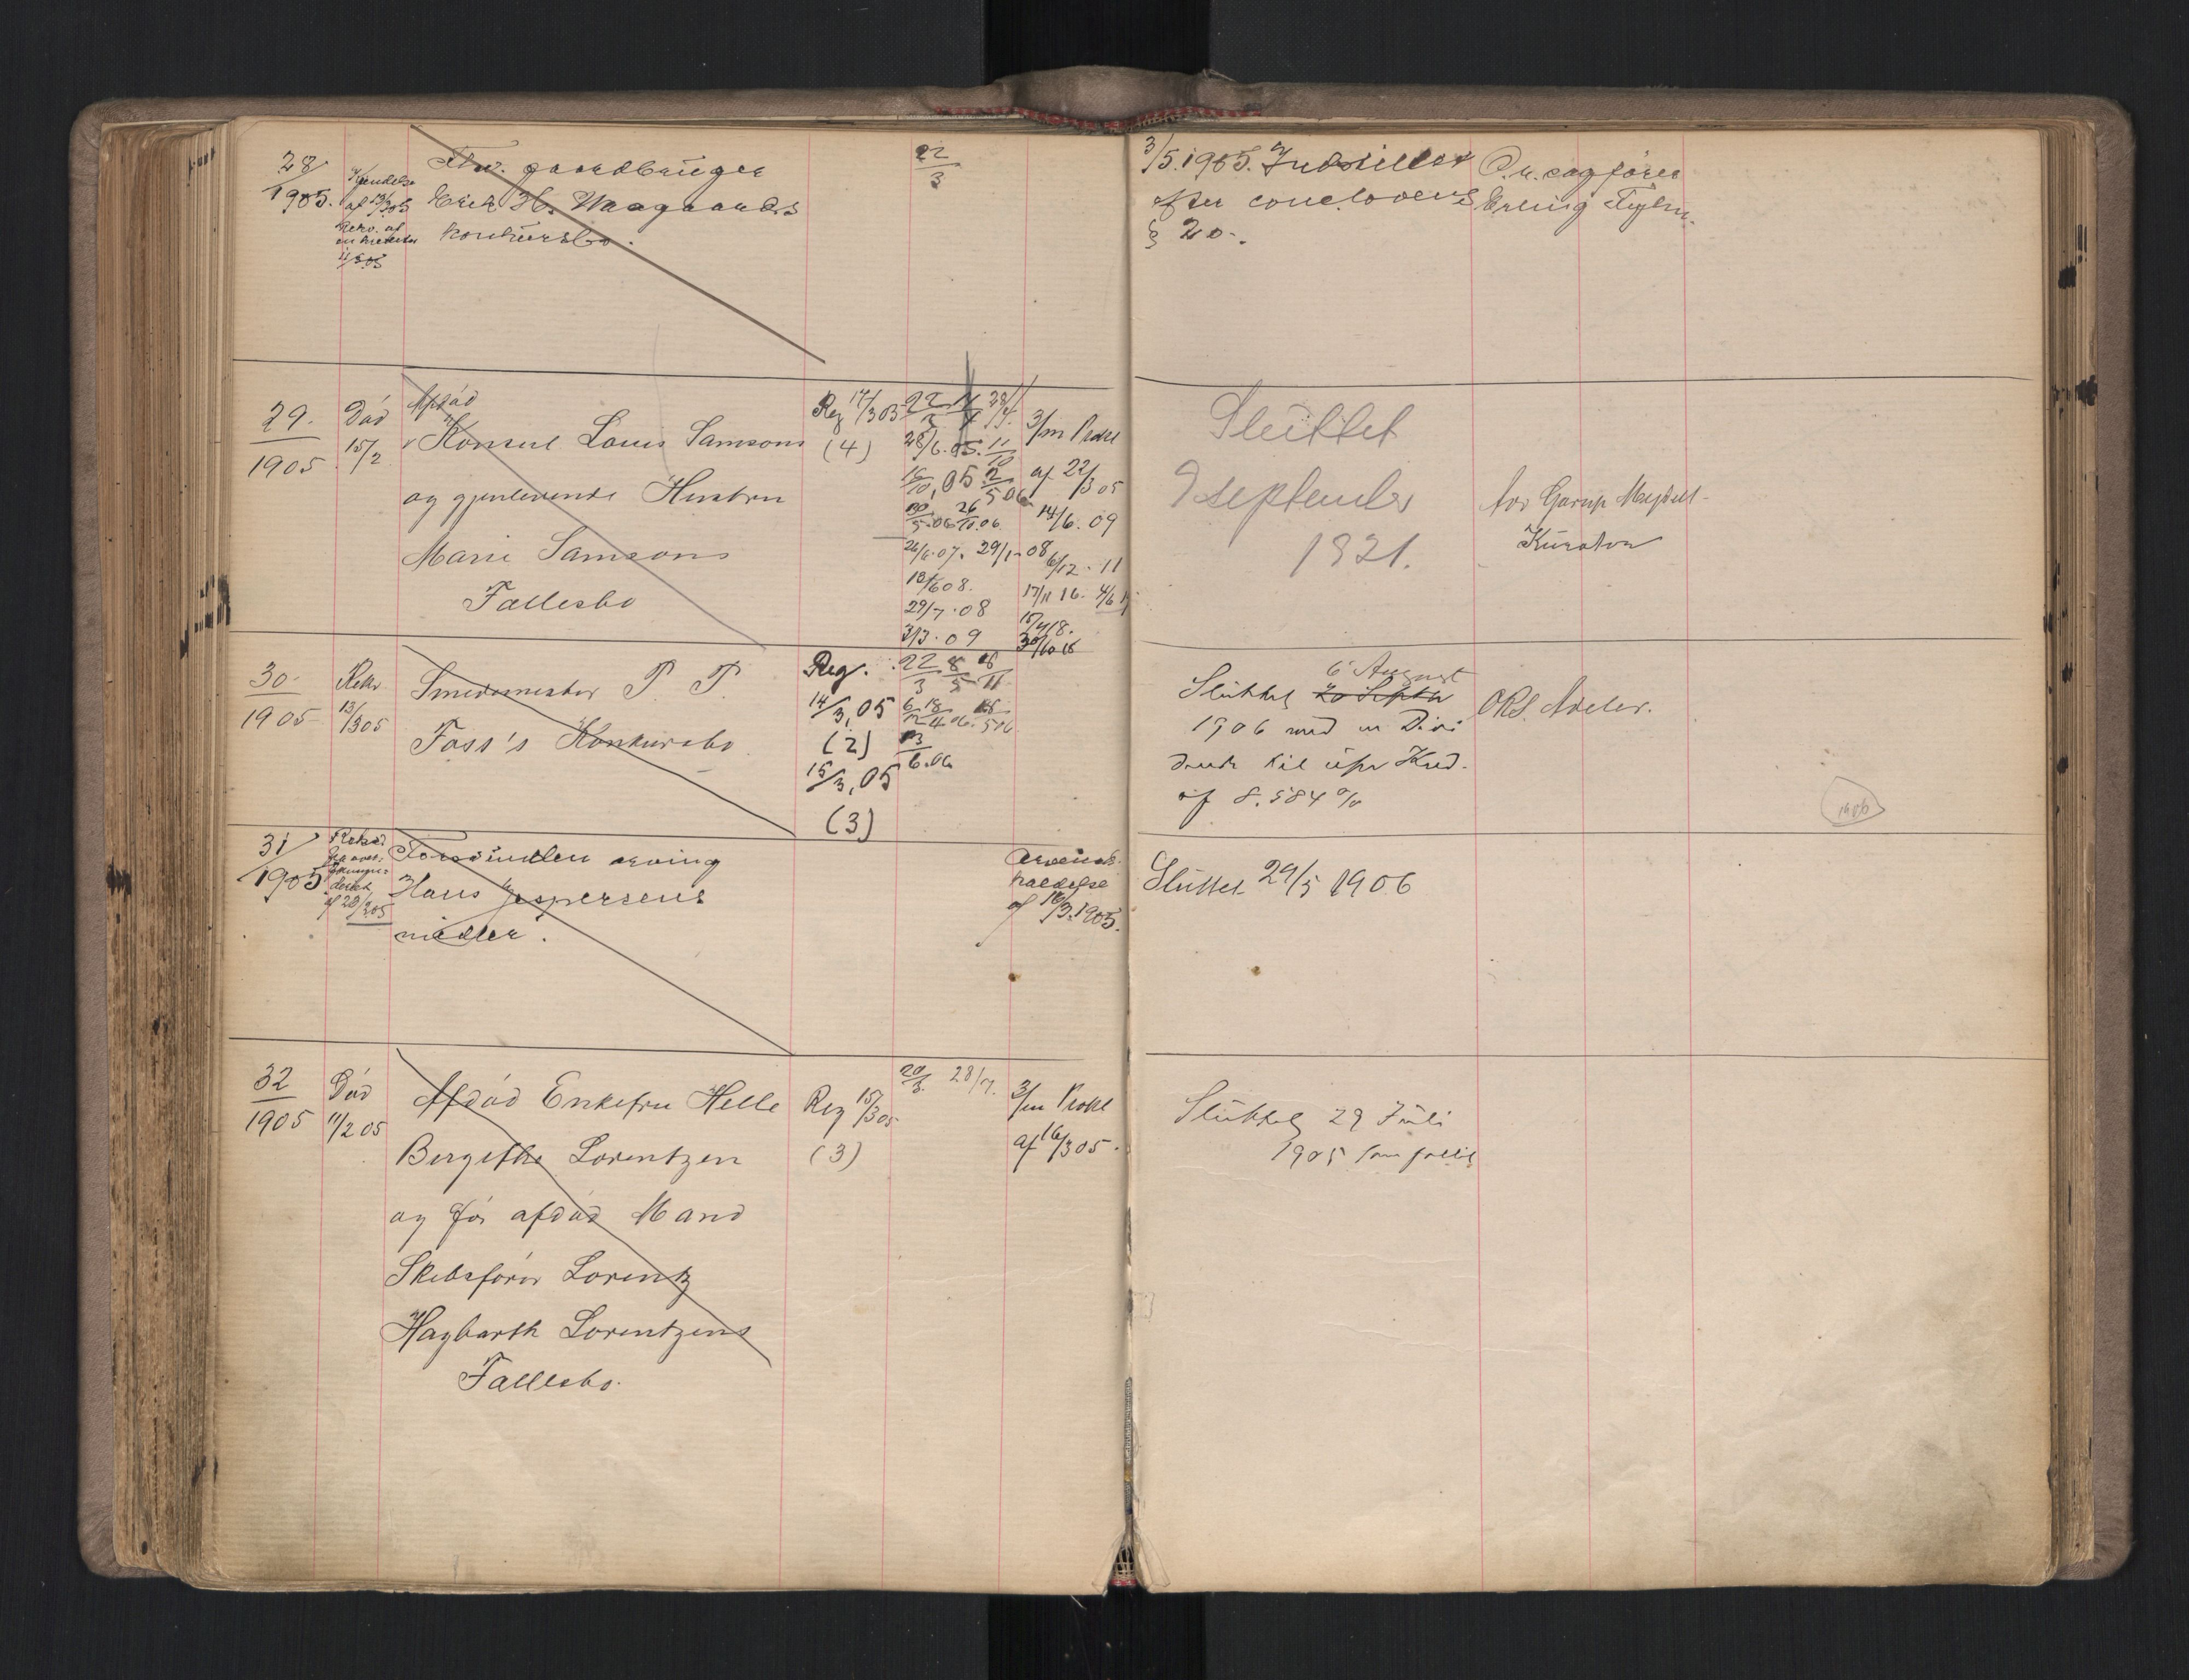 28/1905.
Kjendelse
af 13/3 05
Rekv. af
en kreditor
gaardbruger
Erik H. Waagaards
konkursbo.
22/3
3/5. 1905. Indstillet
efter conc.lovens
§ 20.
O.r. sagfører
Erling
29.
1905
Død
15/2
Afdød
Konsul Louis Samsons
og gjenlevende Hustru
Marie Samsons
Fællesbo
Reg 17/3 05
(4)
28/6. 05. 11/10
16/10, 05 2/5 06
30/5. 06 26/11. 06.
26/6. 07. 29/1 - 08
18/6 08.
29/7. 08
3/3. 09
3/m Procl
af 22/3 05
14/6. 09
6/12. 11
17/11 16. 4/6 17
30/10 18
Sluttet
9 september
1921.
for Garup Meidell
Kurator
30.
1905
Rekv
13/3 05
Smedemester P. T.
Foss's Konkursbo.
Reg.
14/3, 05
(2)
15/3, 05
(3)
22/3 8/5 18/11
6/12 18/4 06. 15/5 06
13/6. 06
6 August
Sluttet 20 Septbr
1906 med en Divi
dende til upr Kred.
af 8.584 %
ORS. Adeler.
1906
31/1905
Rekvd
fra over-
formynderiet
af 20/2 05
Forsvunden arving
Hans Jespersens
midler.
af 16/3. 1905.
Sluttet 29/5 1906
32
1905
Død
11/2 05
Afdød Enkefru Helle
Bergithe Lorentzen
og før afdød Mand
Skibsfører Lorentz
Hagbarth Lorentzens
Fællesbo.
Reg 15/3 05
(3)
20/3. 28/7.
3/m Procl
af 16/3 05.
Sluttet 29 Juli
1905 som fallit